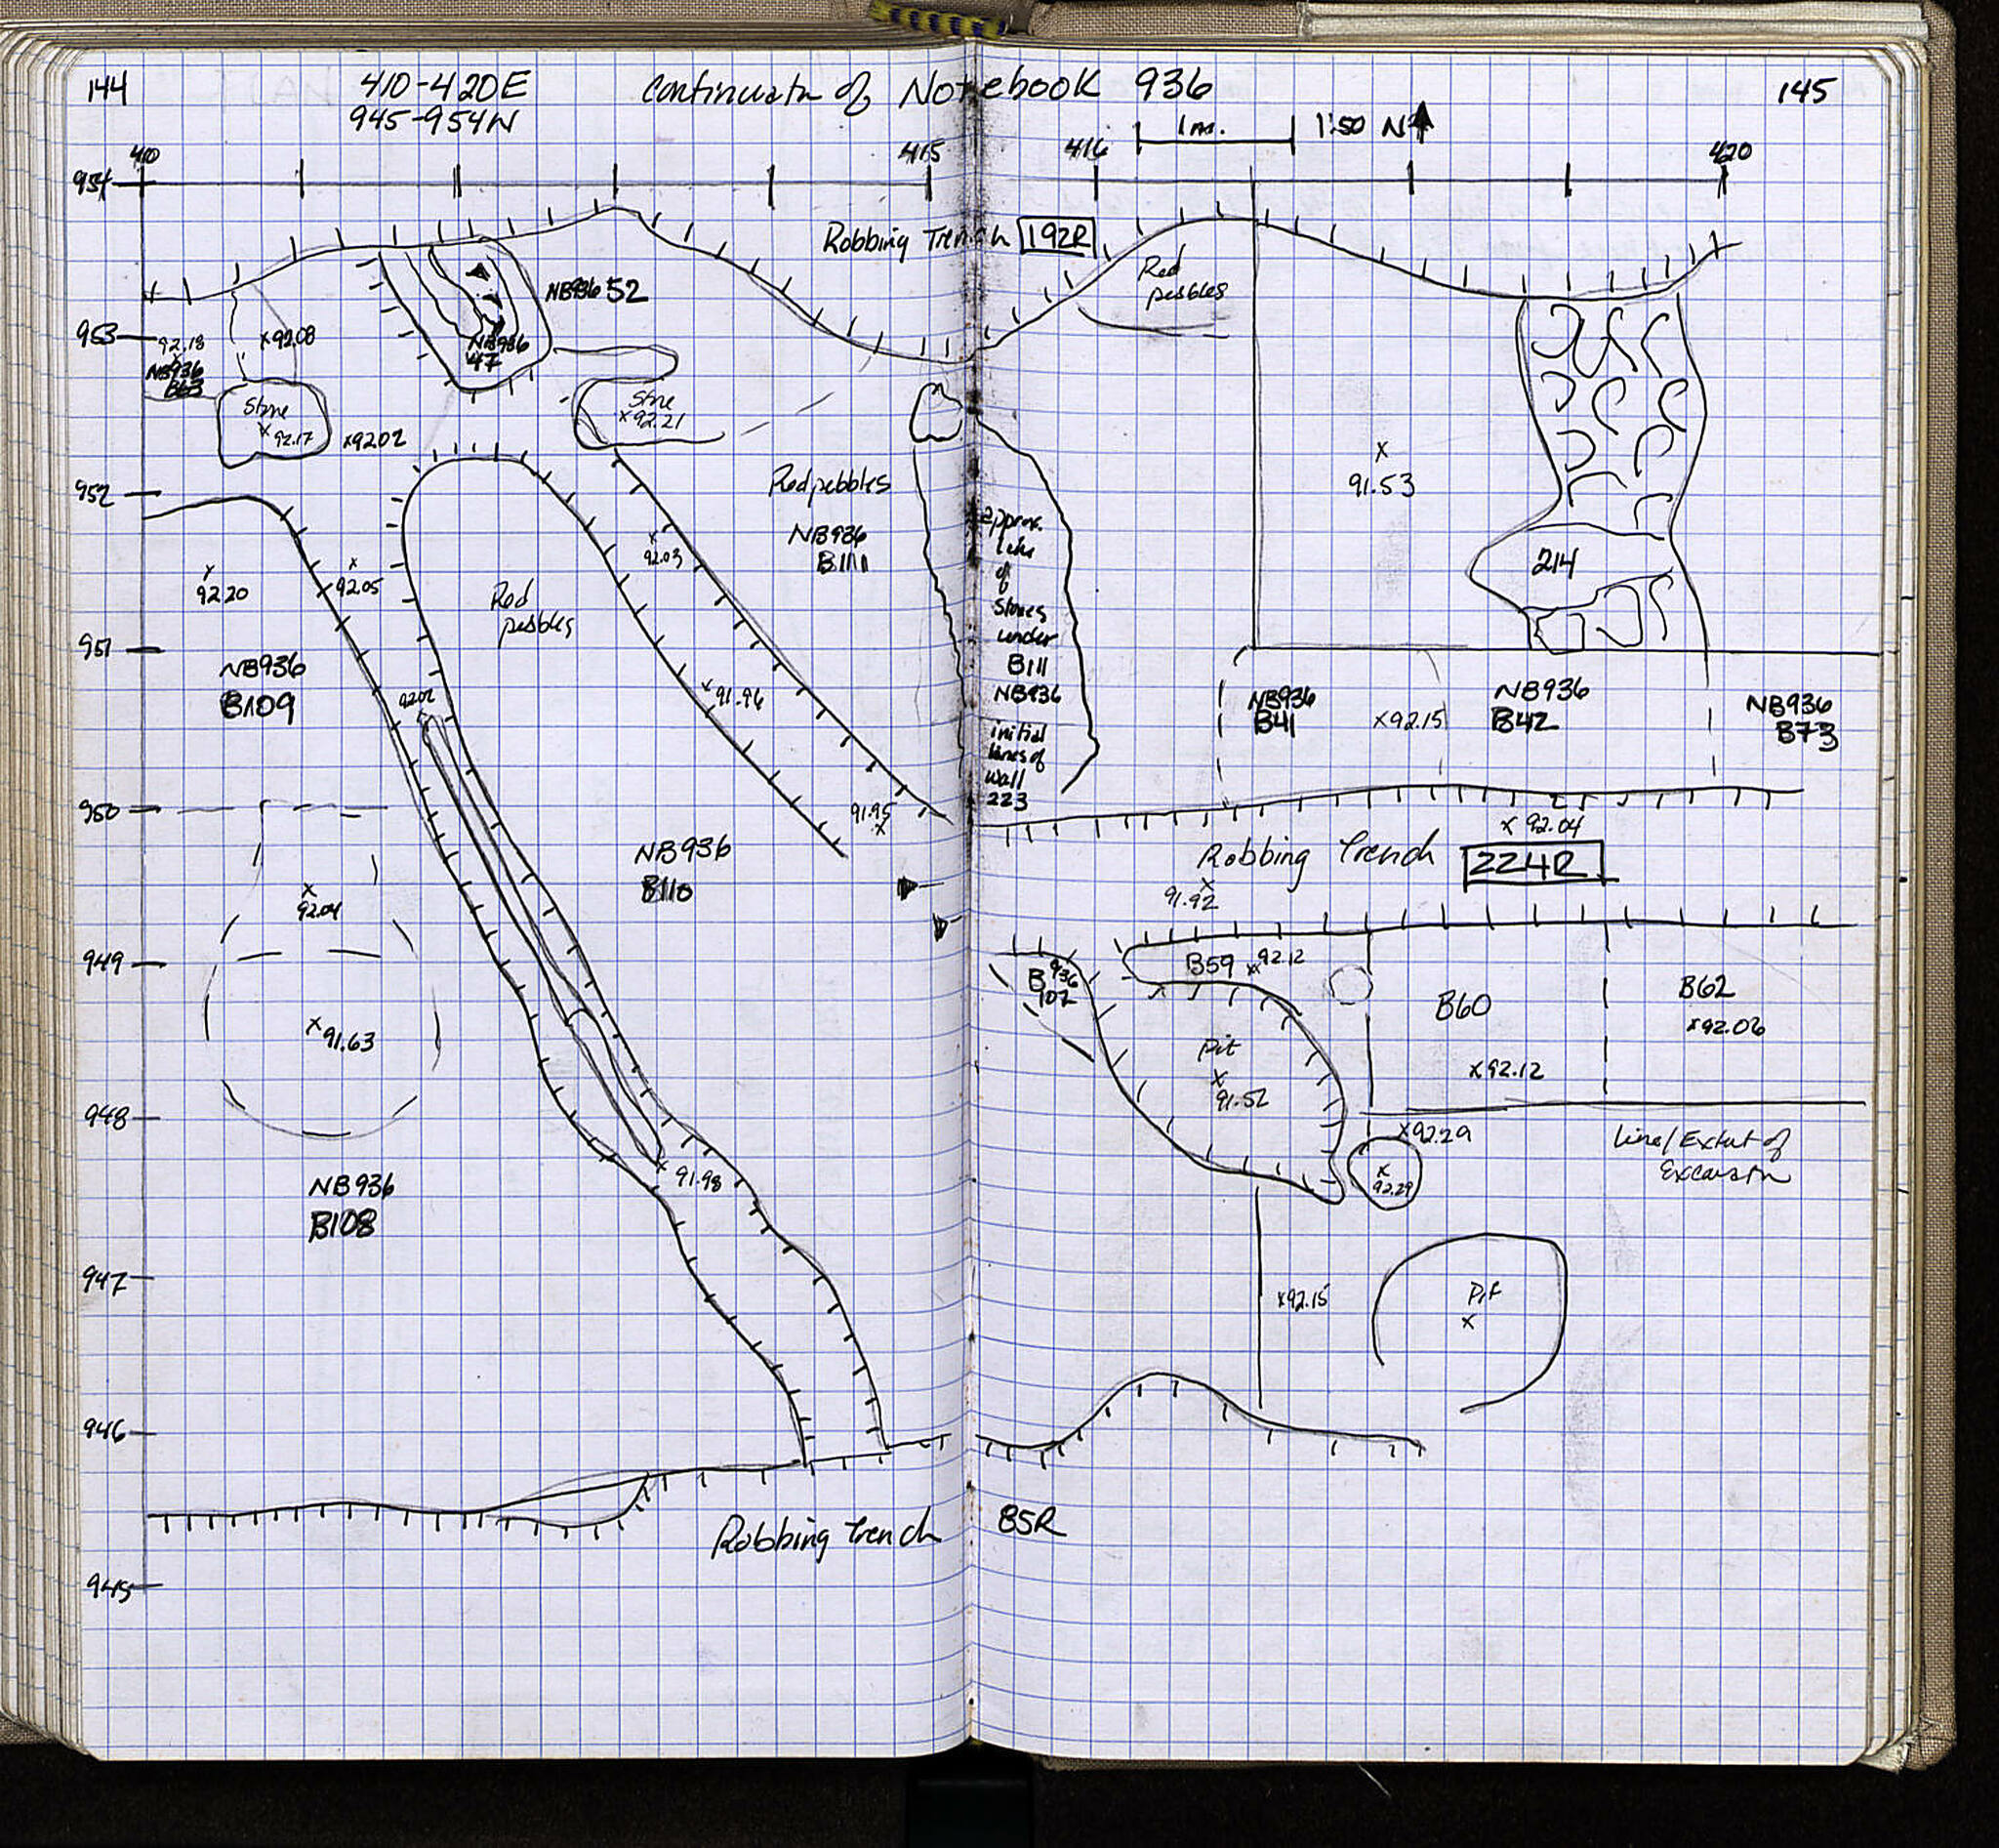 144
410-420E
945-954N
Continuatn of Notebook 936
145
1m.
1:50 N
410
415
416
420
954
953
952
951
950
949
948
947
946
945
Robbing Trench 192R
Red
pebbles
92.18
NB936
B63
x92.08
NB936 52
NB936
47
Stone
x92.17
x9202
Stone
x92.21
Red pebbles
NB936
B111
x
91.53
214
x
92.20
x
92.05
x
92.03
Red
pebbles
approx.
line
of
stones
under
B111
NB936
initial
lines of
wall
223
NB936
B109
9202
x91.96
NB936
B41
x92.15
NB936
B42
NB936
B73
91.95
x
x 92.04
NB936
B110
Robbing Trench 224R
x
91.92
x
92.04
B59 x92.12
B936
102
B60
x92.12
B62
x92.06
x91.63
Pit
x
91.52
x92.29
x
92.29
Line/Extent of
Excavatn
x 91.98
NB936
B108
x92.15
Pit
x
Robbing trench
85R